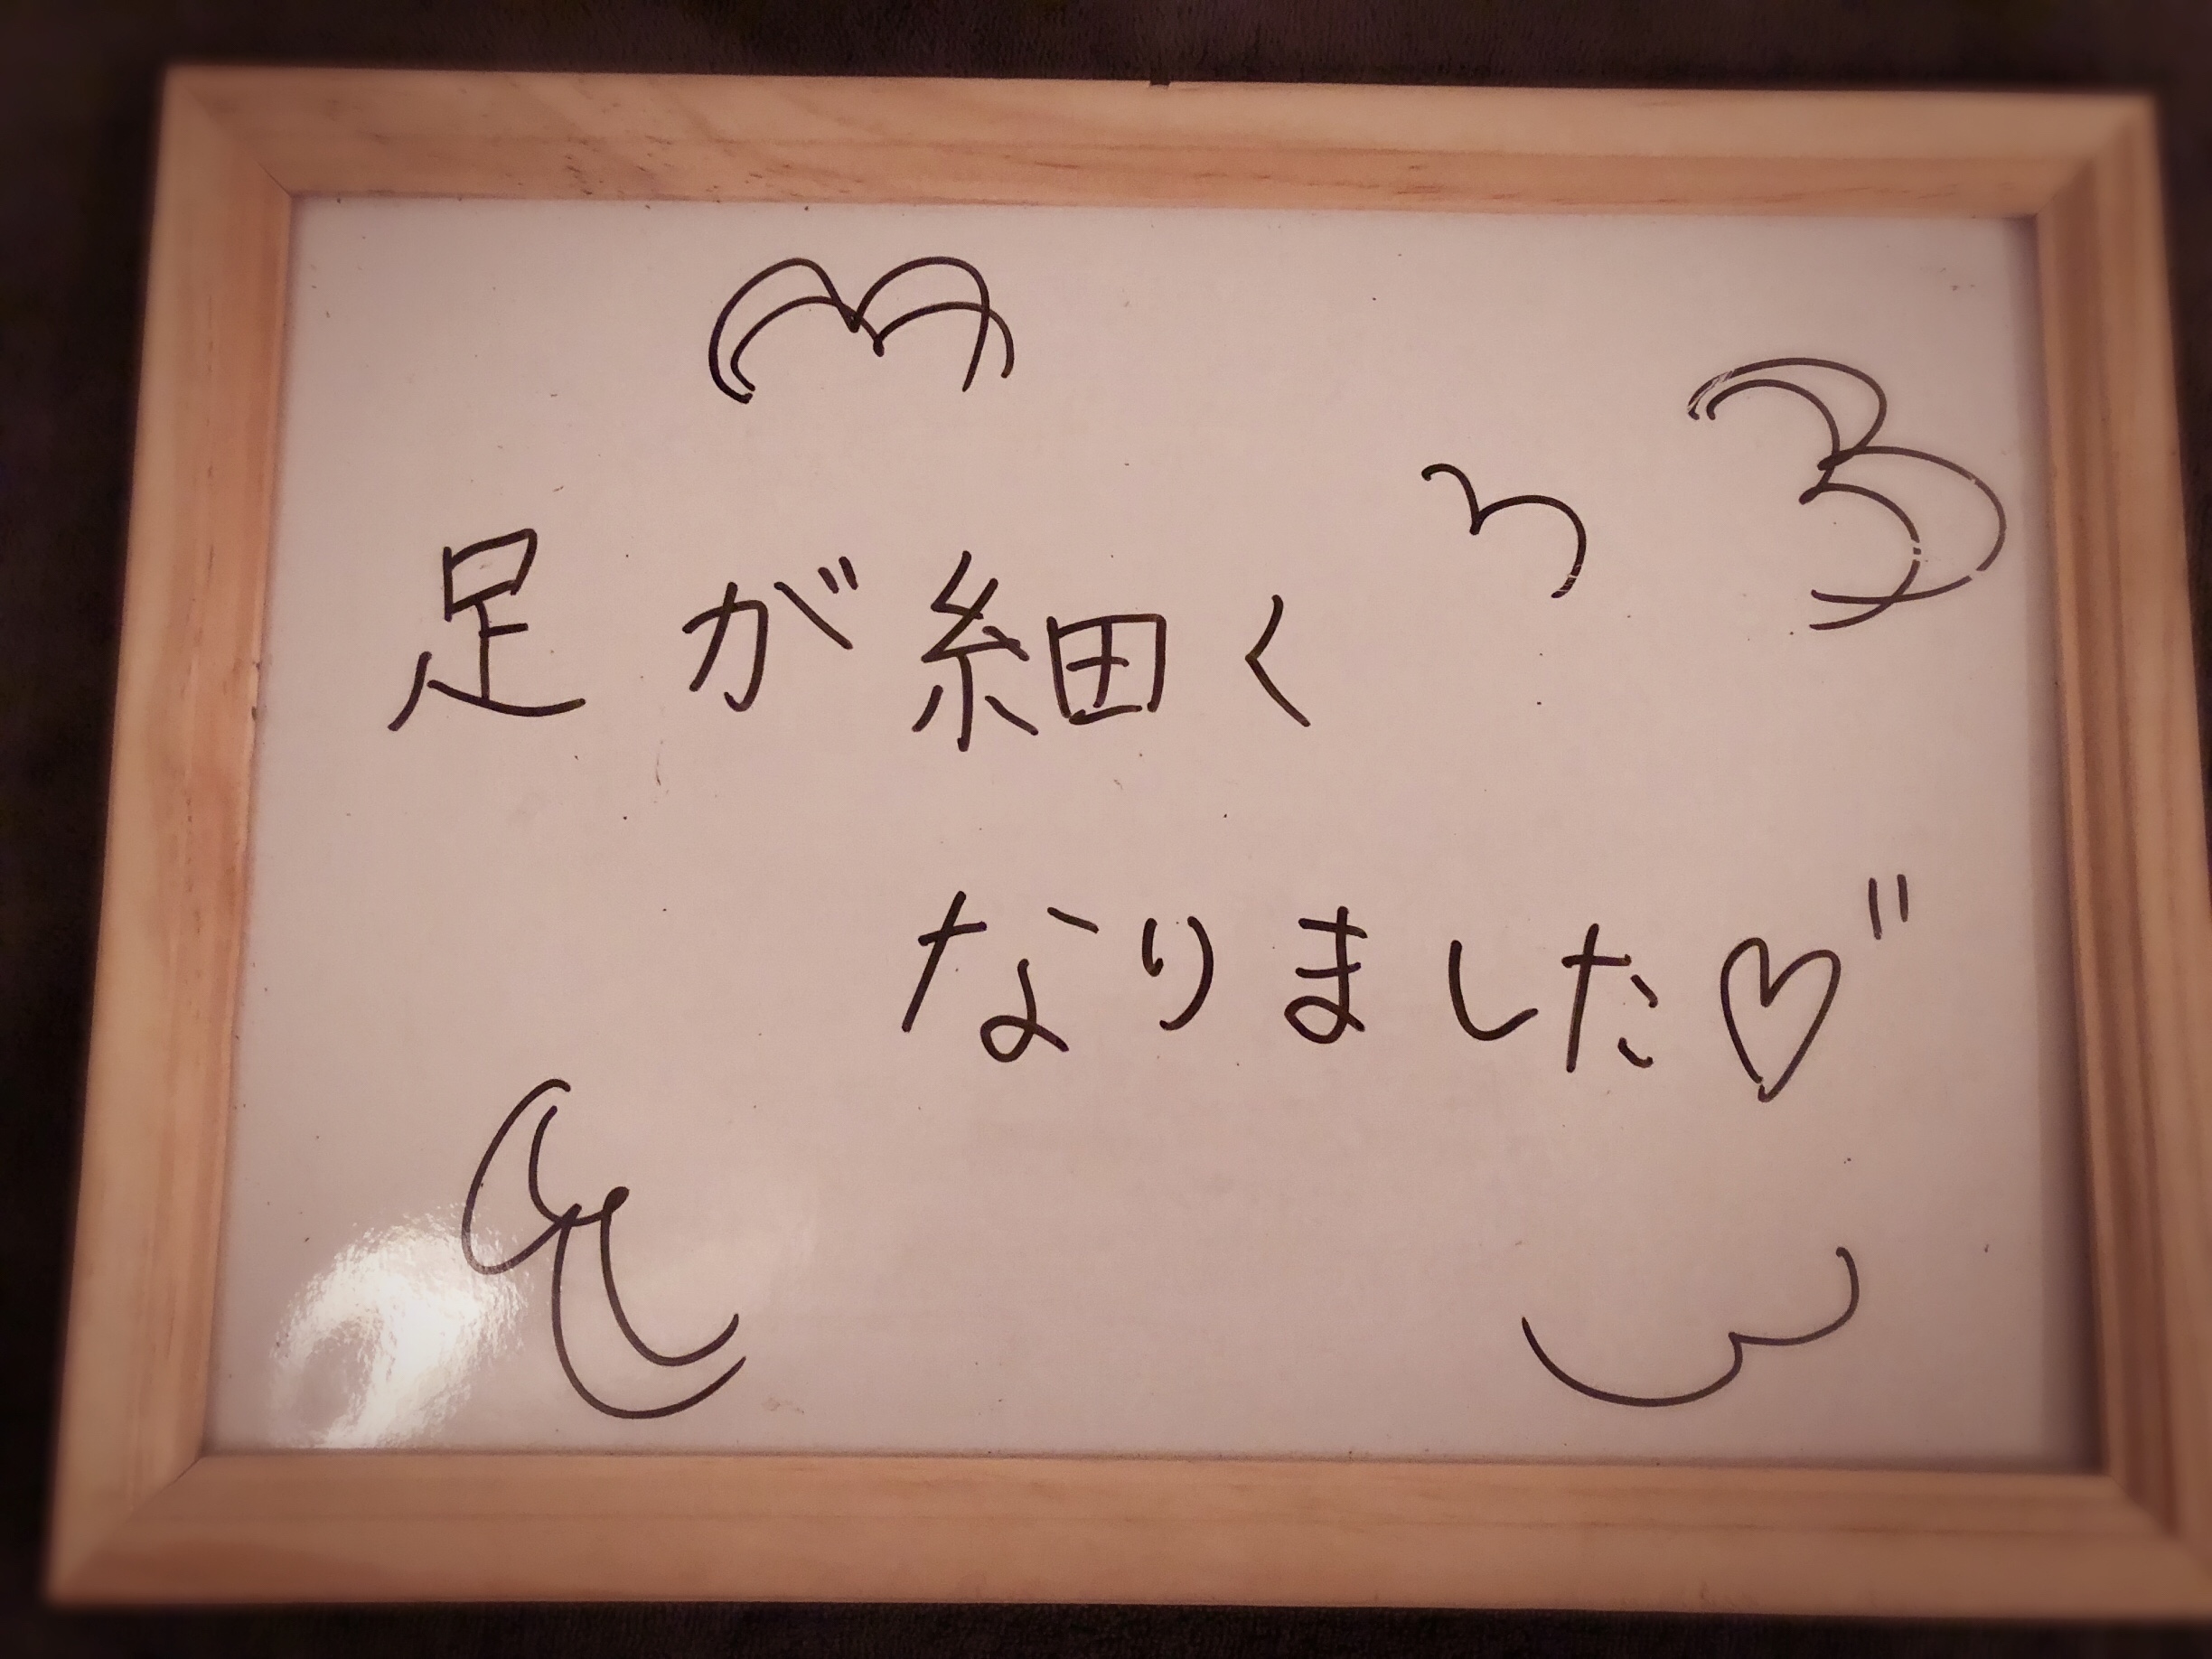 足が細く
なりました♡"